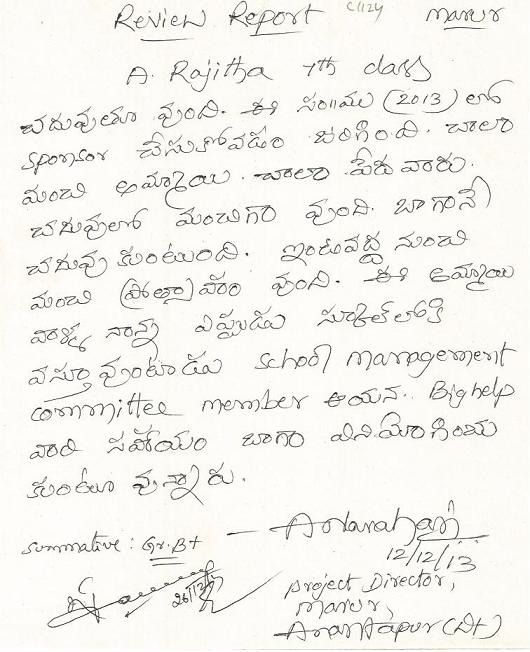 Review Report C1124 Marur
A. Rajitha 7th class
చదువుతూ వుంది. ఈ సం॥ము (2013) లో
sponsor చేసుకోవడం జరిగింది. చాలా
మంచి అమ్మాయి. చాలా పేద వారు.
చదువులో మంచిగా వుంది. బాగానే
చదువు కుంటుంది. ఇంటివద్ద నుంచి
మంచి ప్రోత్సాహం వుంది. ఈ అమ్మాయి
వాళ్ళ నాన్న ఎప్పుడు స్కూల్‌లోకి
వస్తూ వుంటాడు school management
committee member ఆయన. Bighelp
వారి సహాయం బాగా వినియోగించు
కుంటూ వున్నారు.
summative : Gr. B+
12/12/13
26/12/13
project Director,
Marur,
Anantapur (Dt)